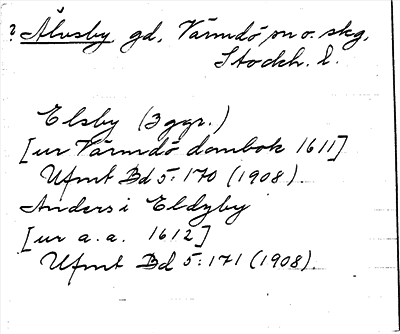 ? Älvsby gd, Värmdö sn o. skg,
Stockh. l.
Elsby (3 ggr.)
[ur Värmdö dombok 1611]
Ufmt Bd 5:170 (1908).
Anders i Eldzby
[ur a.a. 1612]
Ufmt Bd 5:171 (1908).